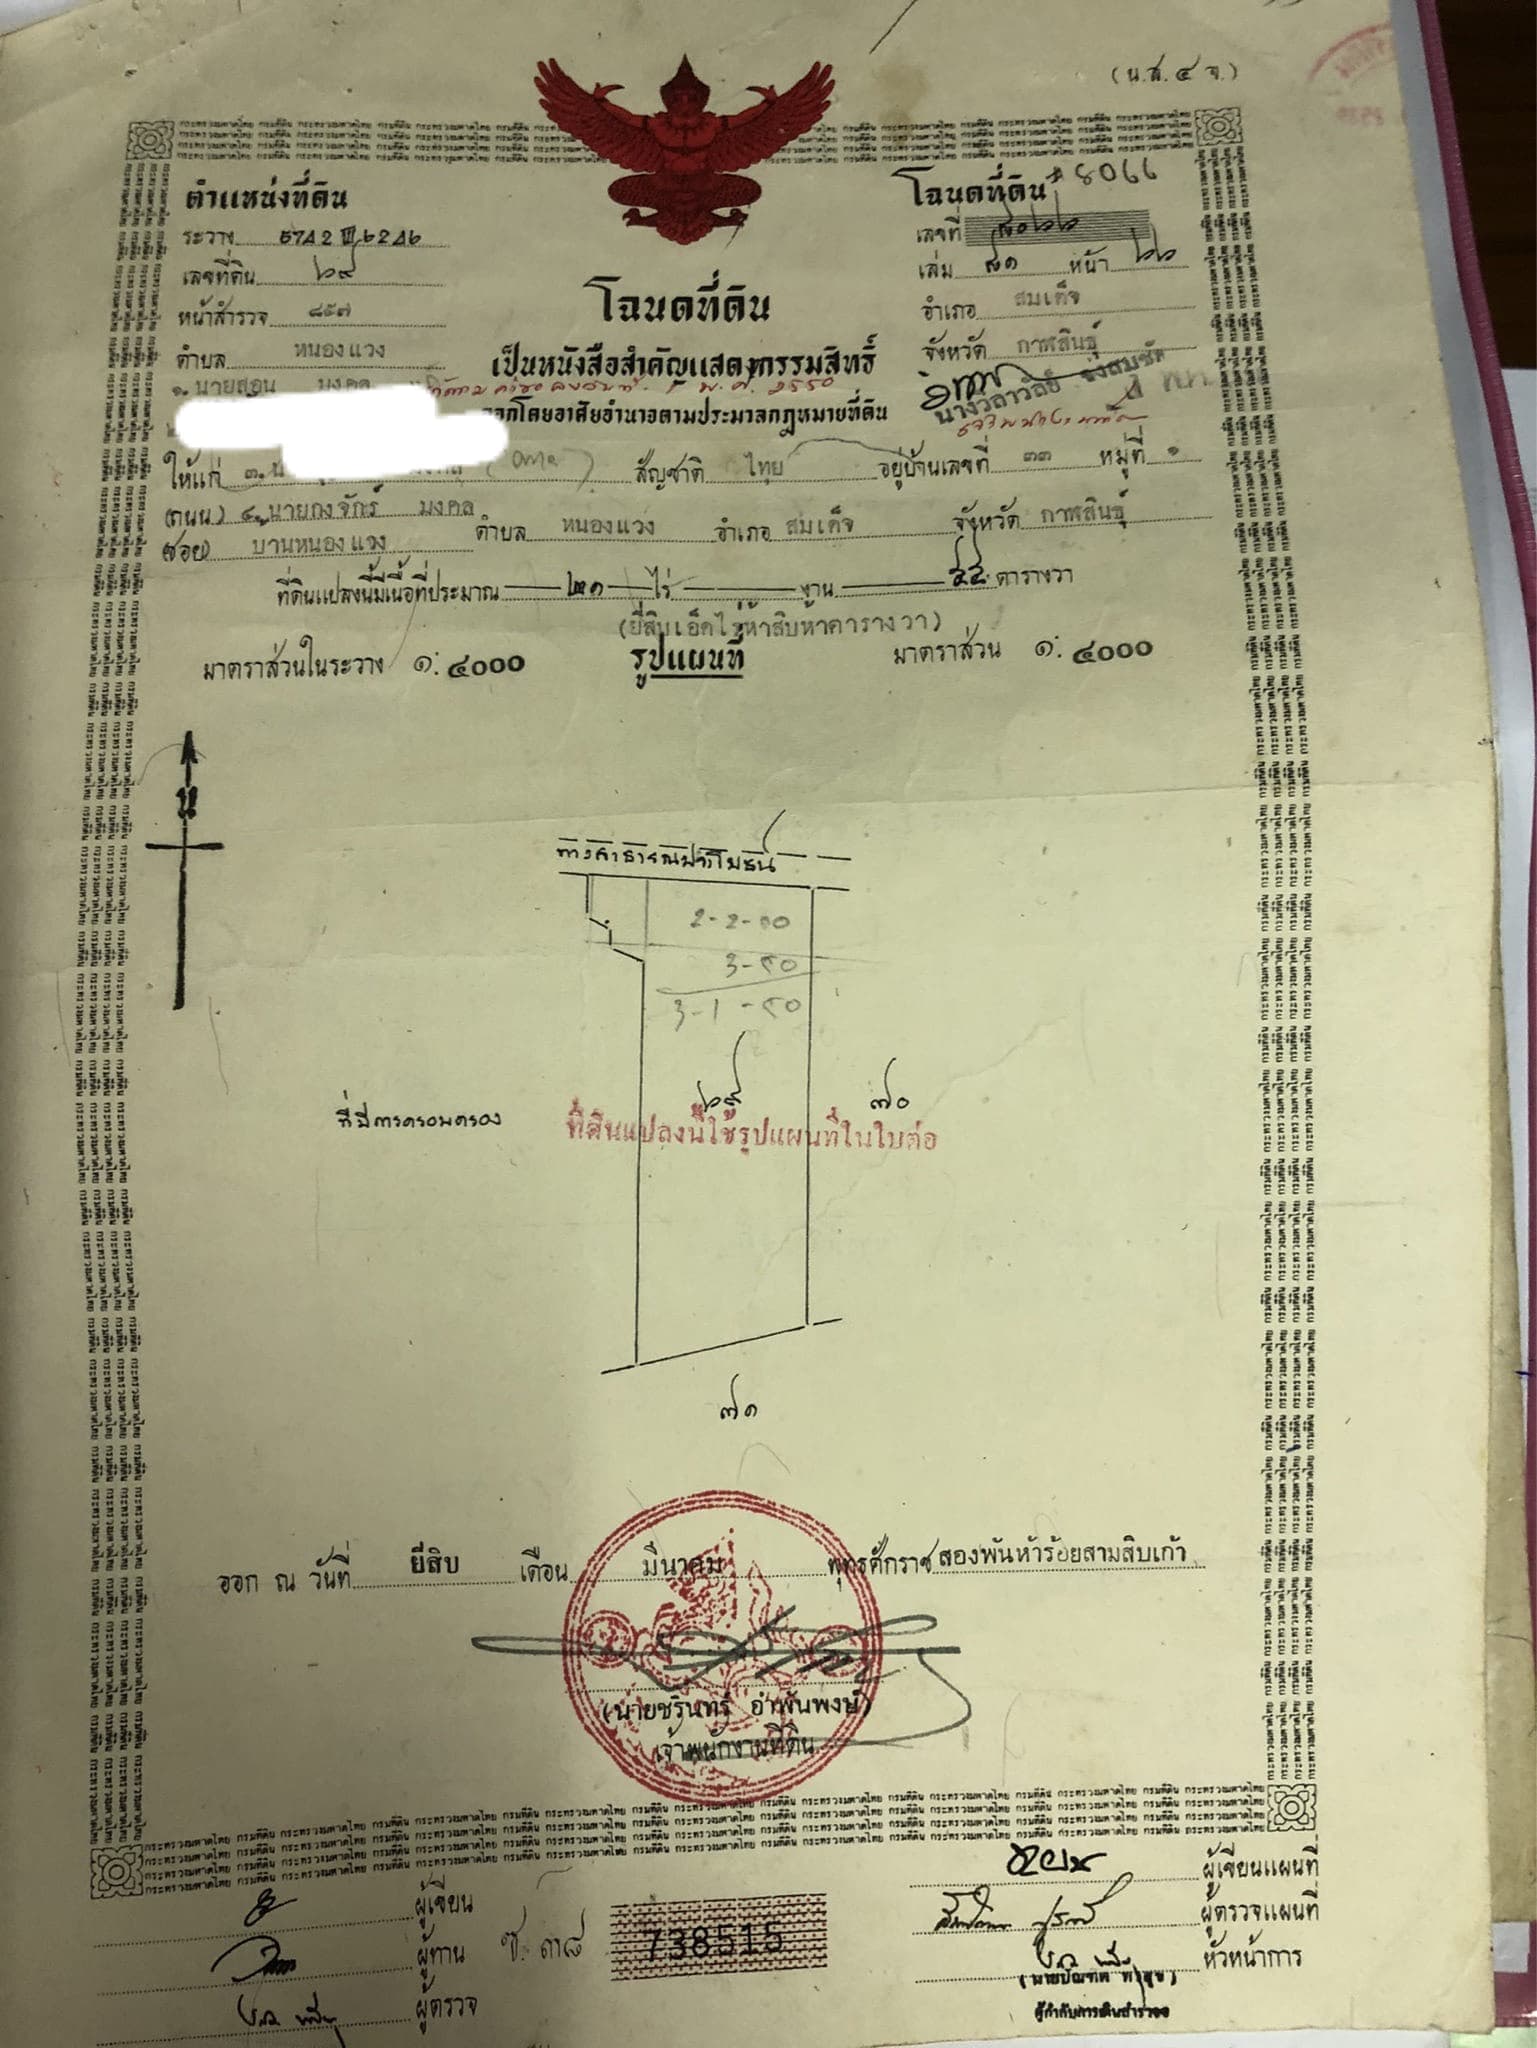 (น.ส.๔ จ.)
ตำแหน่งที่ดิน
ระวาง 5742 III ๖2๘๖
เลขที่ดิน ๖๙
หน้าสำรวจ ๘๕๗
ตำบล หนองแวง
โฉนดที่ดิน 8066
เลขที่ ๘๐๖๖
เล่ม ๘๑ หน้า ๖๖
อำเภอ สมเด็จ
จังหวัด กาฬสินธุ์
โฉนดที่ดิน
เป็นหนังสือสำคัญแสดงกรรมสิทธิ์
พ.ศ. 2550
ออกโดยอาศัยอำนาจตามประมวลกฎหมายที่ดิน
๑. นายสอน มงคล
ให้แก่ ๓. สัญชาติ ไทย อยู่บ้านเลขที่ ๓๓ หมู่ที่ ๑
(ถนน) ๔. นายกงจักร์ มงคล
(ซอย) บ้านหนองแวง ตำบล หนองแวง อำเภอ สมเด็จ จังหวัด กาฬสินธุ์
ที่ดินแปลงนี้มีเนื้อที่ประมาณ ๒๑ ไร่ — งาน ๕๕ ตารางวา
(ยี่สิบเอ็ดไร่ห้าสิบห้าตารางวา)
มาตราส่วนในระวาง ๑:๔๐๐๐ รูปแผนที่ มาตราส่วน ๑:๔๐๐๐
น
ทางสาธารณประโยชน์
2-2-00
3-๙0
3-1-๙0
๖๙
๗๐
ที่มีการครอบครอง
ที่ดินแปลงนี้ใช้รูปแผนที่ในใบต่อ
๗๑
ออก ณ วันที่ ยี่สิบ เดือน มีนาคม พุทธศักราช สองพันห้าร้อยสามสิบเก้า
(นายชรินทร์ อำพันพงษ์)
เจ้าพนักงานที่ดิน
ผู้เขียน
ผู้ทาน
ผู้ตรวจ
738515
ผู้เขียนแผนที่
ผู้ตรวจแผนที่
หัวหน้าการ
ผู้กำกับการเดินสำรวจ